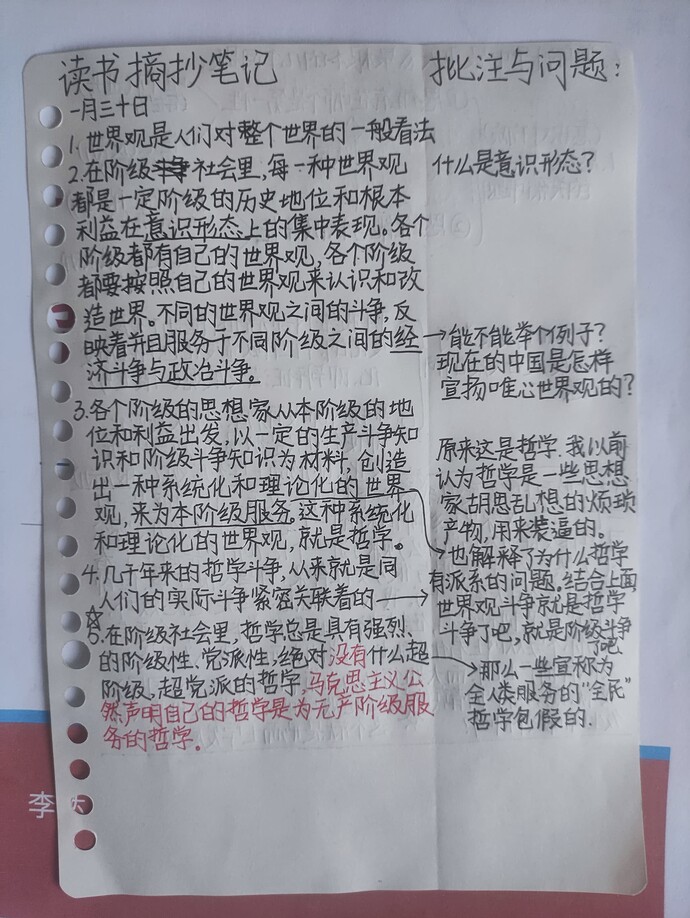 读书摘抄笔记
一月三十日
1. 世界观是人们对整个世界的一般看法
2. 在阶级社会里,每一种世界观
都是一定阶级的历史地位和根本
利益在意识形态上的集中表现。各个
阶级都有自己的世界观,各个阶级
都要按照自己的世界观来认识和改
造世界。不同的世界观之间的斗争,反
映着并且服务于不同阶级之间的经
济斗争与政治斗争。
3. 各个阶级的思想家从本阶级的地
位和利益出发,以一定的生产斗争知
识和阶级斗争知识为材料,创造
出一种系统化和理论化的世界
观,来为本阶级服务。这种系统化
和理论化的世界观,就是哲学。
4. 几千年来的哲学斗争,从来就是同
人们的实际斗争紧密关联着的
☆
5. 在阶级社会里,哲学总是具有强烈
的阶级性、党派性,绝对没有什么超
阶级,超党派的哲学,马克思主义公
然声明自己的哲学是为无产阶级服
务的哲学。
批注与问题:
什么是意识形态?
→能不能举个例子?
现在的中国是怎样
宣扬唯心世界观的?
原来这是哲学.我以前
认为哲学是一些思想
家胡思乱想的烦琐
产物,用来装逼的。
也解释了为什么哲学
有派系的问题。结合上面
世界观斗争就是哲学
斗争了吧,就是阶级斗争
了吧
那么一些宣称为
全人类服务的“全民”
哲学包假的.
李